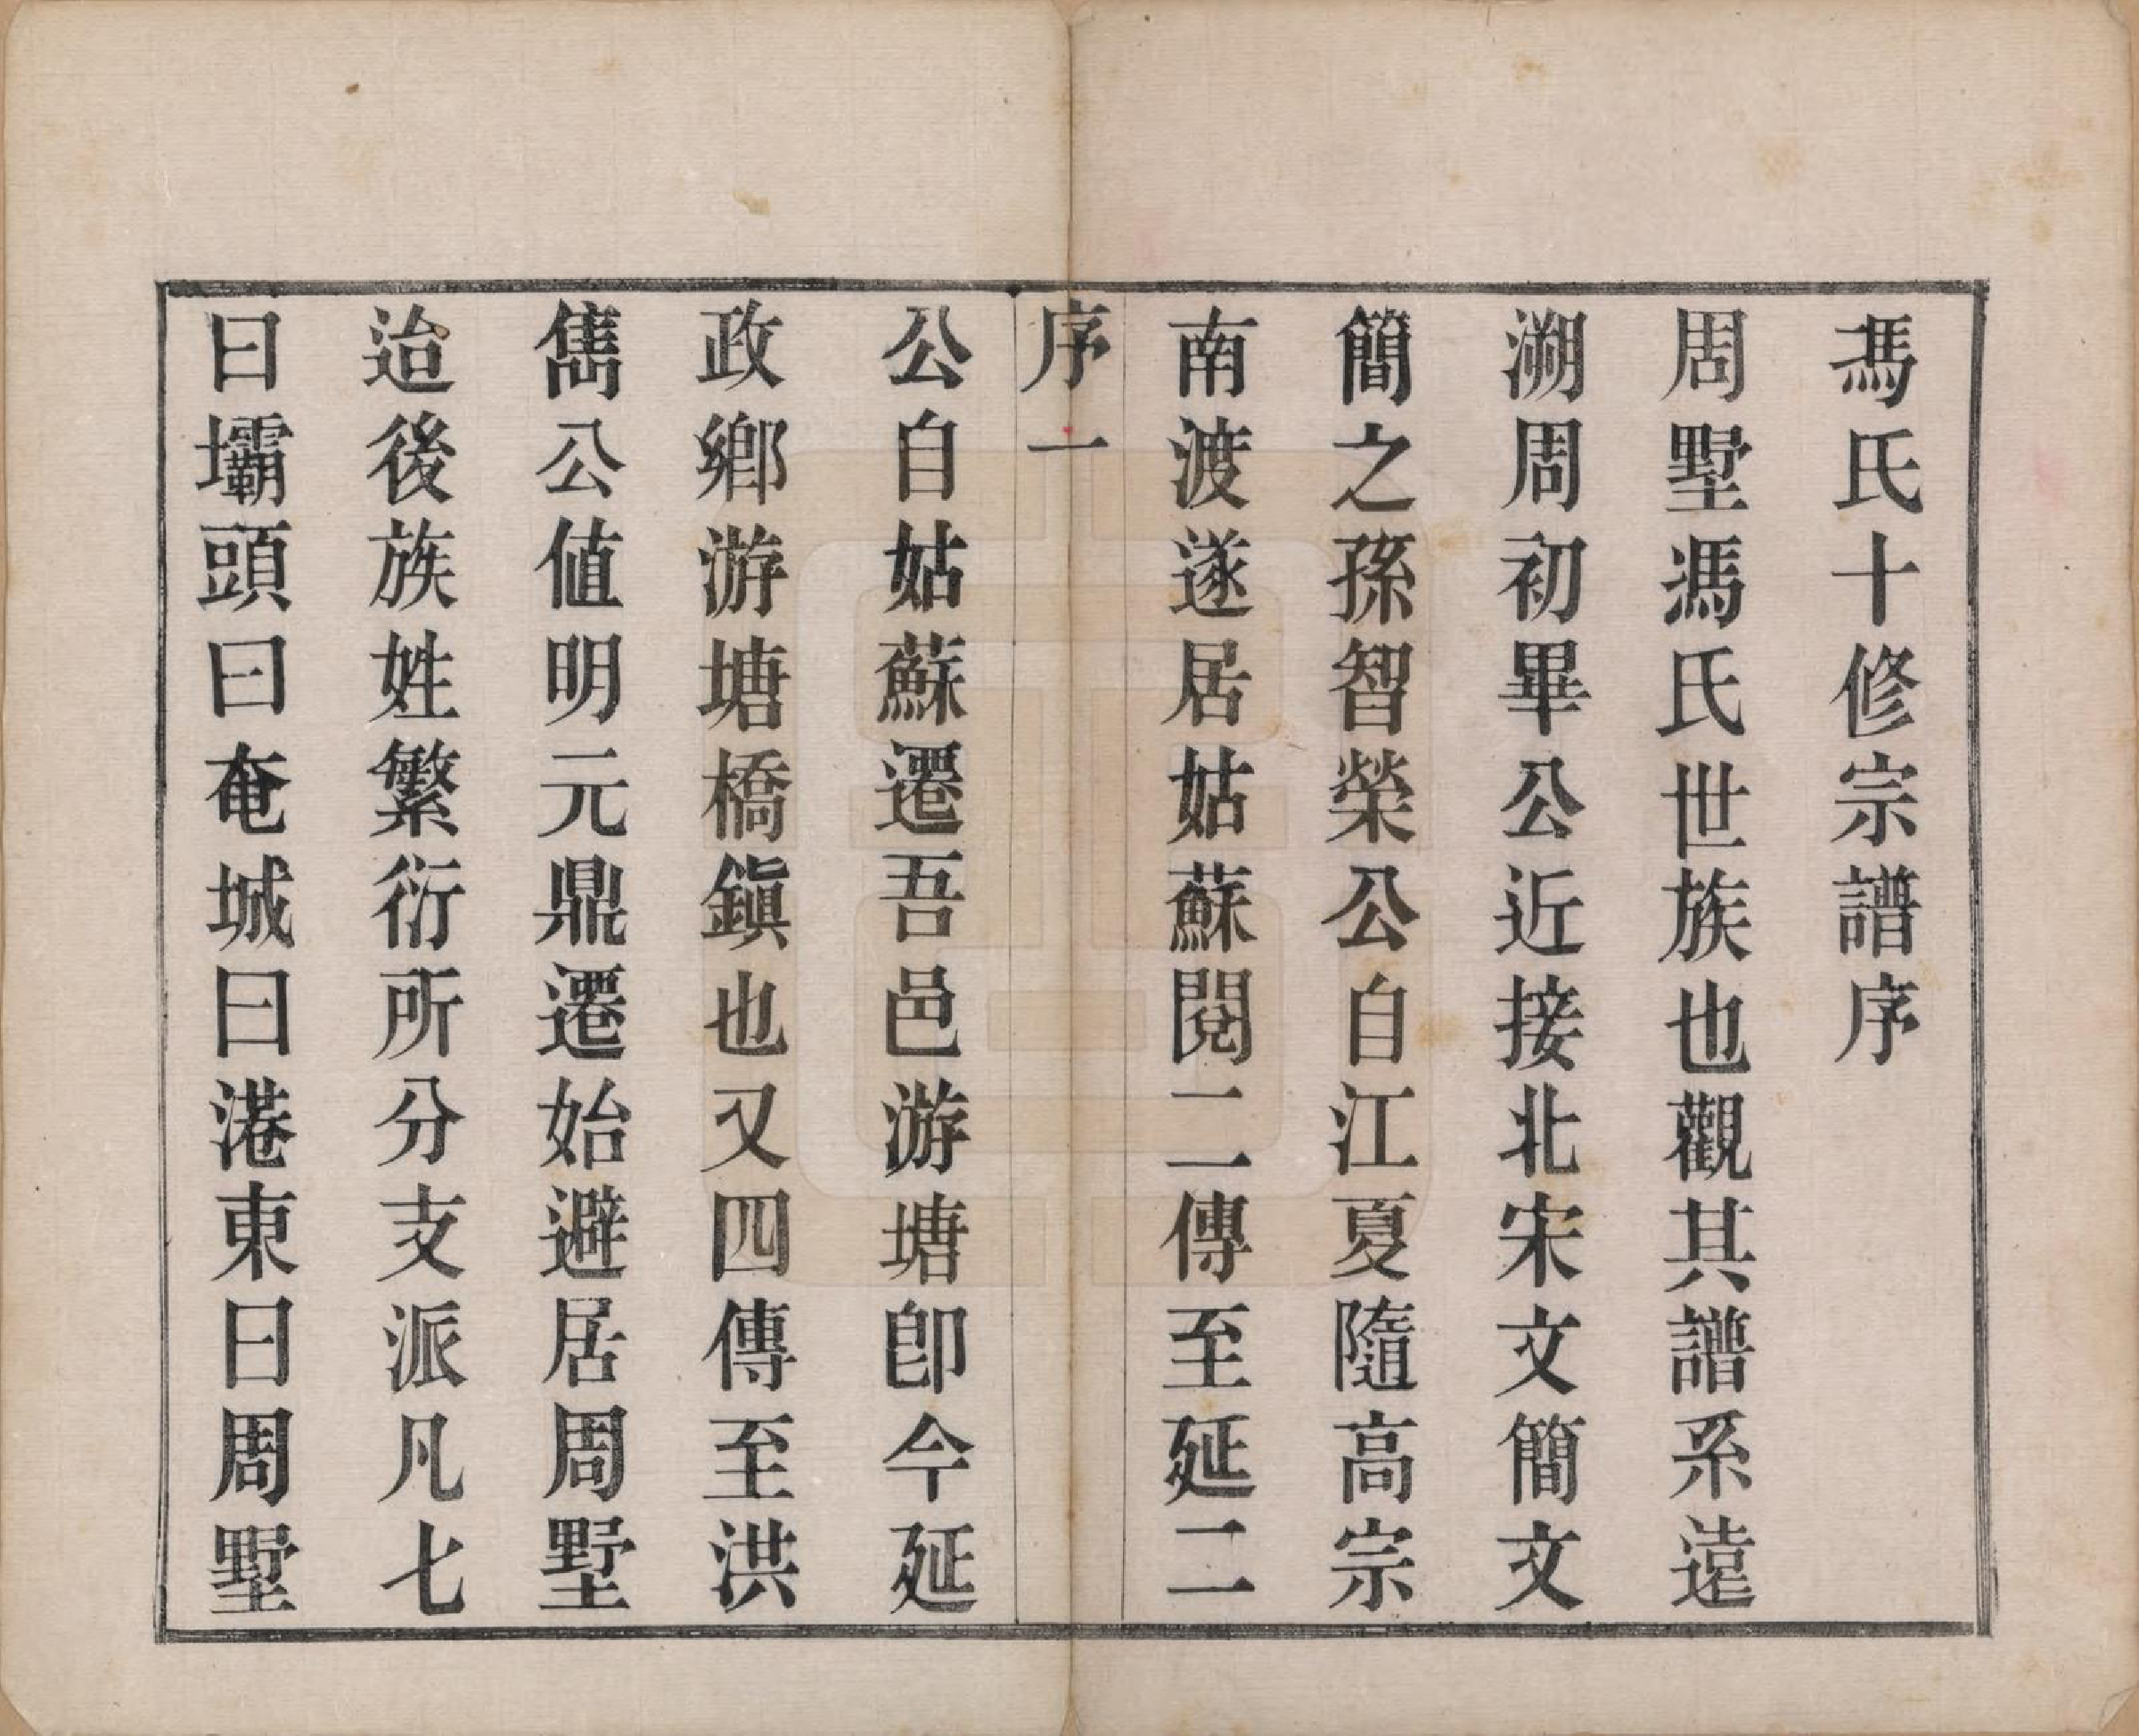 馮氏十修宗譜序
周墅馮氏世族也觀其譜系遠
溯周初畢公近接北宋文簡文
簡之孫智榮公自江夏隨高宗
南渡遂居姑蘇閱二傳至延二
序一
公自姑蘇遷吾邑游塘卽今延
政鄉游塘橋鎭也又四傳至洪
儁公值明元鼎遷始避居周墅
迨後族姓繁衍所分支派凡七
曰壩頭曰奄城曰港東曰周墅